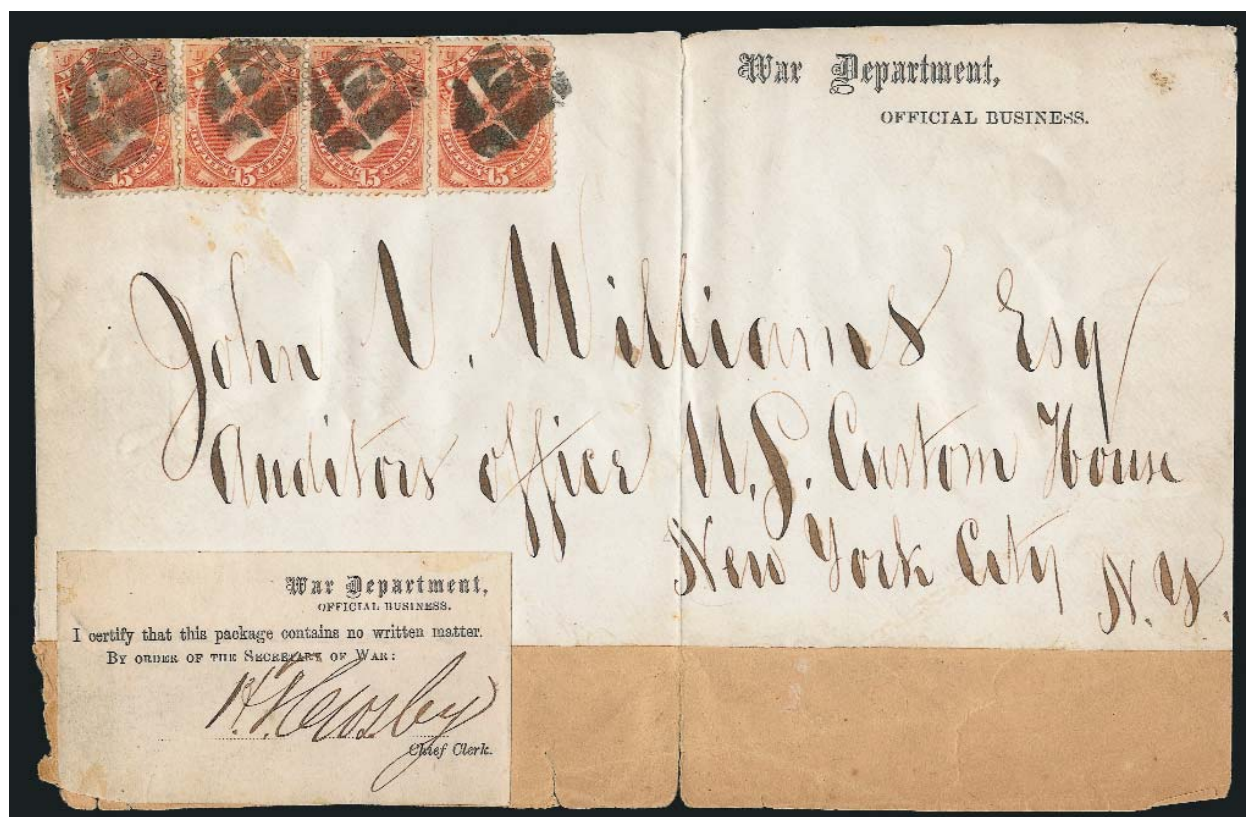 War Department,
OFFICIAL BUSINESS.
15 15 15 15
John V. Williams Esq
Auditors office U.S. Custom House
New York City N.Y.
War Department,
OFFICIAL BUSINESS.
I certify that this package contains no written matter.
BY ORDER OF THE SECRETARY OF WAR:
H. T. Crosby
Chief Clerk.